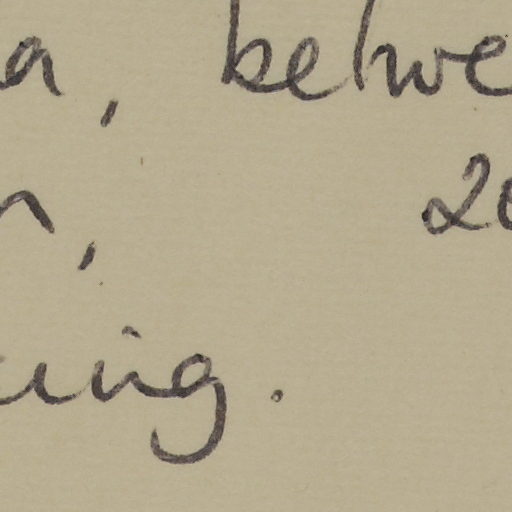 a, betwe
n, 20
ing.